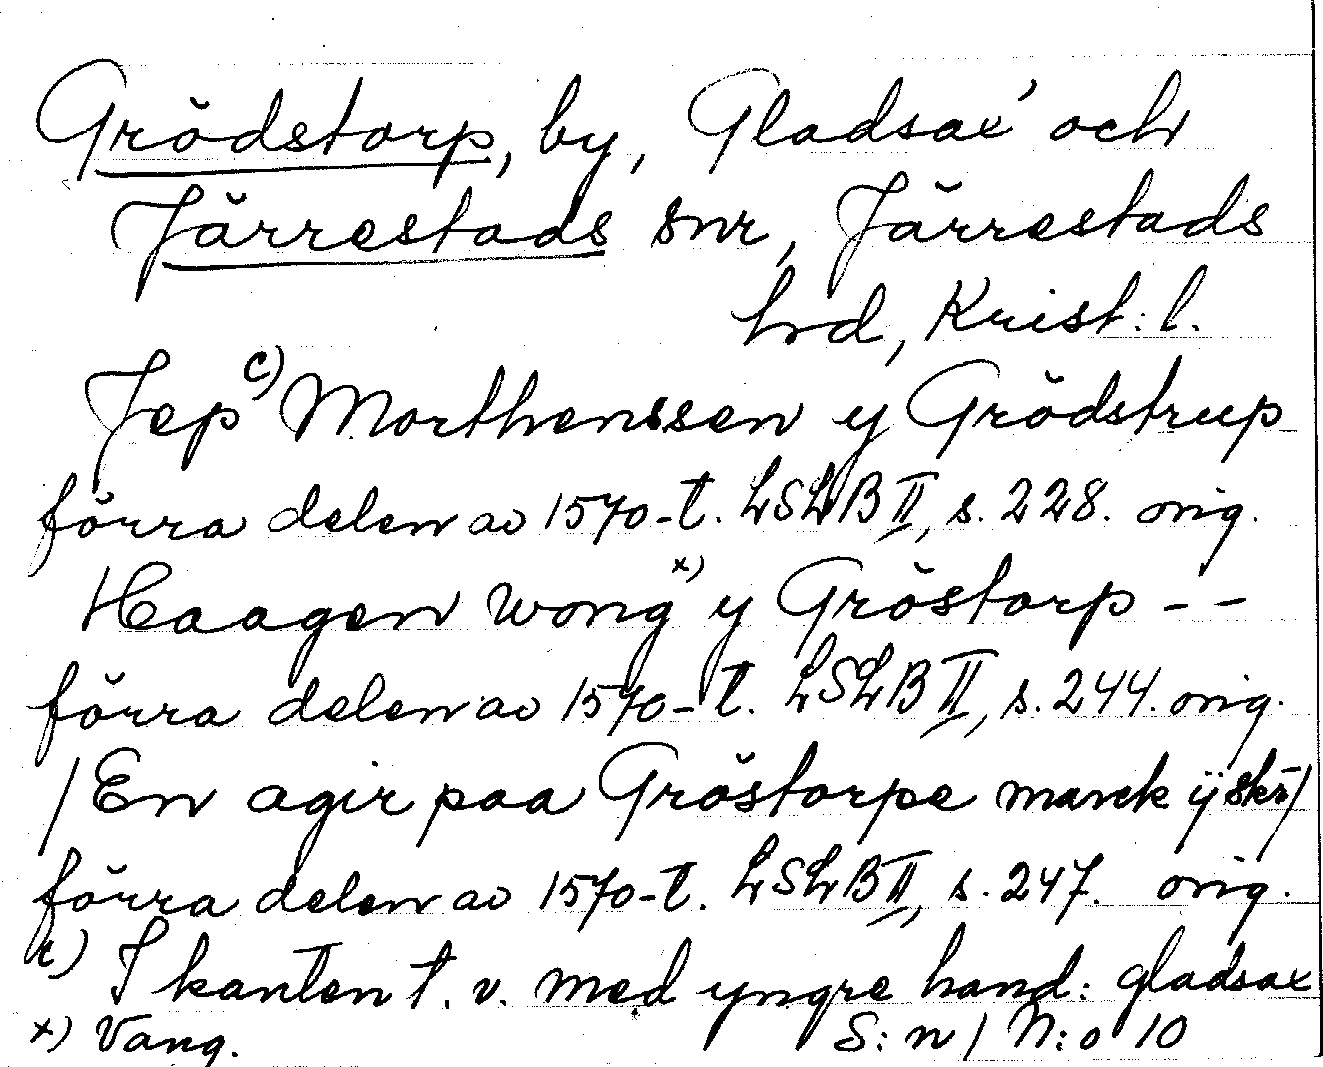 Grödstorp, by, Gladsax' och
Järrestads snr, Järrestads
hrd, Krist: l.
Jep c) Morthenssen y Grödstrup
förra delen av 1570-t. LSLB II, s. 228. orig.
Haagen Wong x) y Gröstorp - -
förra delen av 1570-t. LSLB II, s. 244. orig.
/En agir paa Gröstorpe marck ÿ
förra delen av 1570-t. LSLB II, s. 247. orig.
c) I kanten t. v. med yngre hand: gladsax
x) Vang. S: n / N:o 10